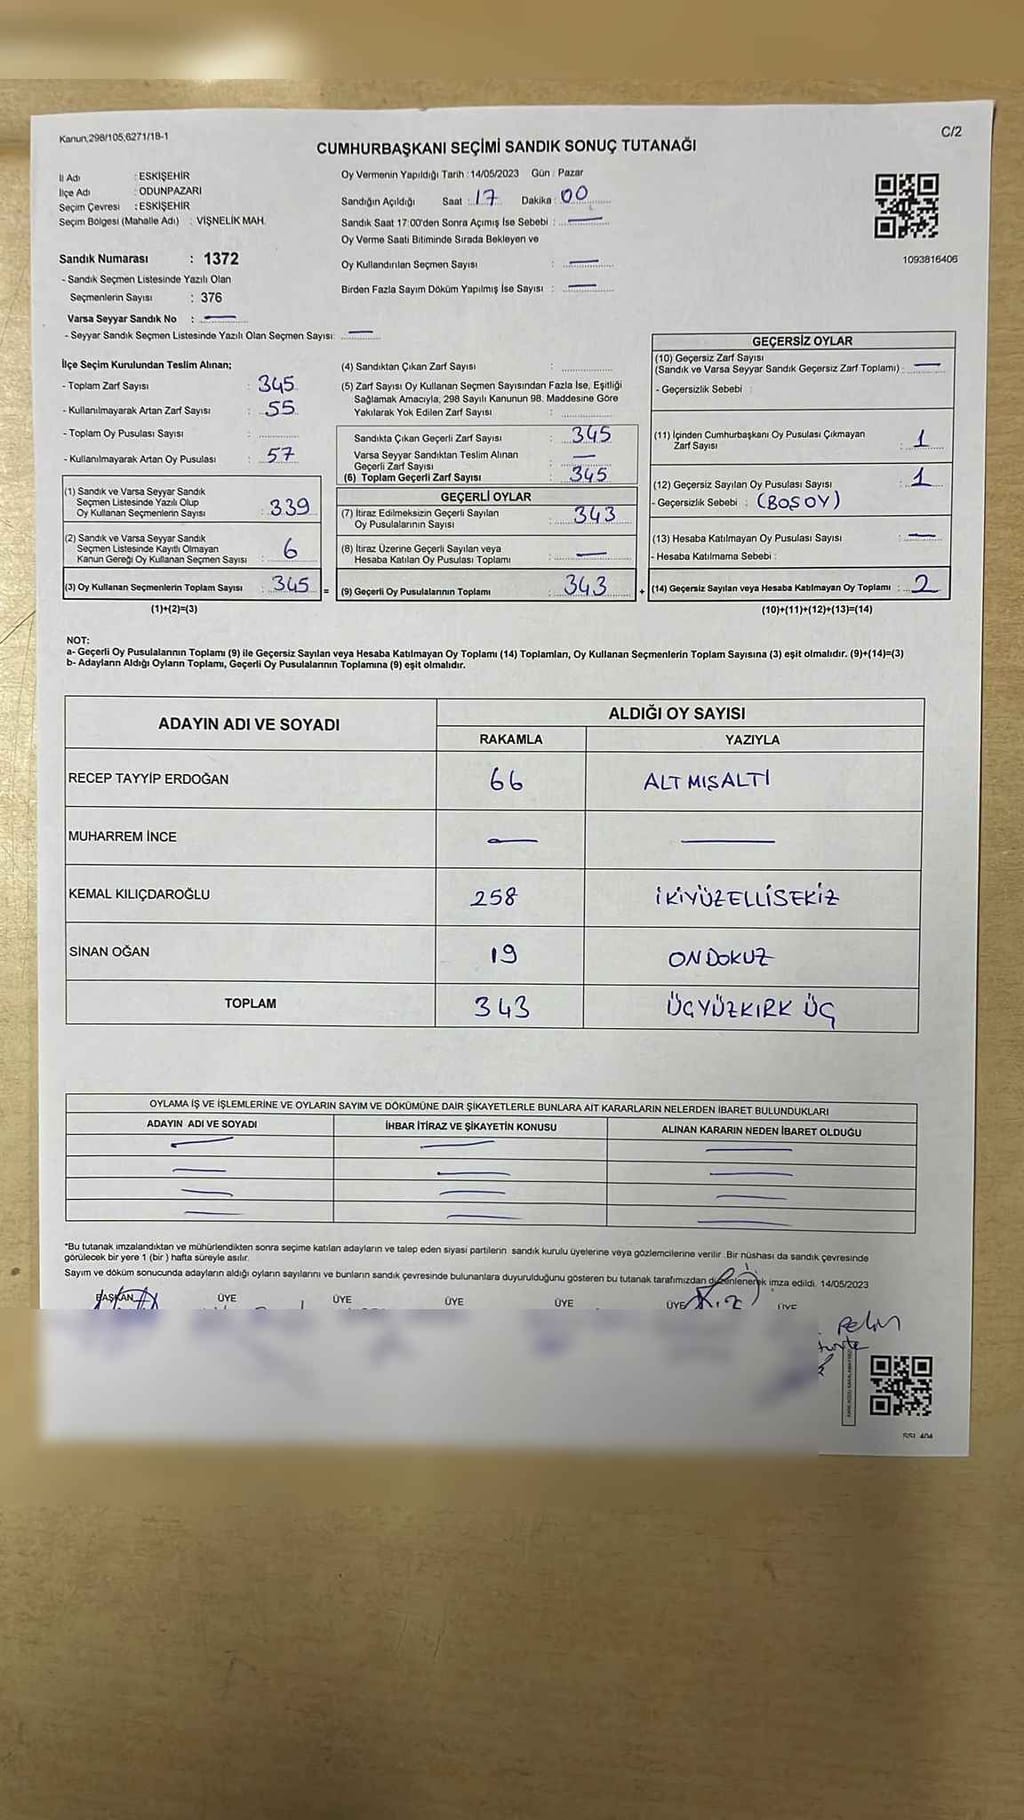 Kanun,298/105,6271/18-1
C/2
CUMHURBAŞKANI SEÇİMİ SANDIK SONUÇ TUTANAĞI
İl Adı : ESKİŞEHİR
İlçe Adı : ODUNPAZARI
Seçim Çevresi : ESKİŞEHİR
Seçim Bölgesi (Mahalle Adı) : VİŞNELİK MAH.
Sandık Numarası : 1372
- Sandık Seçmen Listesinde Yazılı Olan
Seçmenlerin Sayısı : 376
Varsa Seyyar Sandık No : —
- Seyyar Sandık Seçmen Listesinde Yazılı Olan Seçmen Sayısı: —
Oy Vermenin Yapıldığı Tarih : 14/05/2023 Gün : Pazar
Sandığın Açıldığı Saat : 17 Dakika : 00
Sandık Saat 17:00'den Sonra Açımış İse Sebebi : —
Oy Verme Saati Bitiminde Sırada Bekleyen ve
Oy Kullandırılan Seçmen Sayısı : —
Birden Fazla Sayım Döküm Yapılmış İse Sayısı : —
1093816406
İlçe Seçim Kurulundan Teslim Alınan;
- Toplam Zarf Sayısı : 345
- Kullanılmayarak Artan Zarf Sayısı : 55
- Toplam Oy Pusulası Sayısı :
- Kullanılmayarak Artan Oy Pusulası : 57
(1) Sandık ve Varsa Seyyar Sandık
Seçmen Listesinde Yazılı Olup
Oy Kullanan Seçmenlerin Sayısı : 339
(2) Sandık ve Varsa Seyyar Sandık
Seçmen Listesinde Kayıtlı Olmayan
Kanun Gereği Oy Kullanan Seçmen Sayısı : 6
(3) Oy Kullanan Seçmenlerin Toplam Sayısı : 345 =
(1)+(2)=(3)
(4) Sandıktan Çıkan Zarf Sayısı :
(5) Zarf Sayısı Oy Kullanan Seçmen Sayısından Fazla İse, Eşitliği
Sağlamak Amacıyla, 298 Sayılı Kanunun 98. Maddesine Göre
Yakılarak Yok Edilen Zarf Sayısı :
Sandıkta Çıkan Geçerli Zarf Sayısı : 345
Varsa Seyyar Sandıktan Teslim Alınan
Geçerli Zarf Sayısı : —
(6) Toplam Geçerli Zarf Sayısı : 345
GEÇERLİ OYLAR
(7) İtiraz Edilmeksizin Geçerli Sayılan
Oy Pusulalarının Sayısı : 343
(8) İtiraz Üzerine Geçerli Sayılan veya
Hesaba Katılan Oy Pusulası Toplamı : —
(9) Geçerli Oy Pusulalarının Toplamı : 343 +
GEÇERSİZ OYLAR
(10) Geçersiz Zarf Sayısı
(Sandık ve Varsa Seyyar Sandık Geçersiz Zarf Toplamı) : —
- Geçersizlik Sebebi :
(11) İçinden Cumhurbaşkanı Oy Pusulası Çıkmayan
Zarf Sayısı : 1
(12) Geçersiz Sayılan Oy Pusulası Sayısı : 1
- Geçersizlik Sebebi : (BOŞ OY)
(13) Hesaba Katılmayan Oy Pusulası Sayısı : —
- Hesaba Katılmama Sebebi :
(14) Geçersiz Sayılan veya Hesaba Katılmayan Oy Toplamı : 2
(10)+(11)+(12)+(13)=(14)
NOT:
a- Geçerli Oy Pusulalarının Toplamı (9) ile Geçersiz Sayılan veya Hesaba Katılmayan Oy Toplamı (14) Toplamları, Oy Kullanan Seçmenlerin Toplam Sayısına (3) eşit olmalıdır. (9)+(14)=(3)
b- Adayların Aldığı Oyların Toplamı, Geçerli Oy Pusulalarının Toplamına (9) eşit olmalıdır.
ADAYIN ADI VE SOYADI ALDIĞI OY SAYISI
RAKAMLA YAZIYLA
RECEP TAYYİP ERDOĞAN 66 ALTMIŞALTI
MUHARREM İNCE — —
KEMAL KILIÇDAROĞLU 258 İKİYÜZELLİSEKİZ
SİNAN OĞAN 19 ONDOKUZ
TOPLAM 343 ÜÇYÜZKIRK ÜÇ
OYLAMA İŞ VE İŞLEMLERİNE VE OYLARIN SAYIM VE DÖKÜMÜNE DAİR ŞİKAYETLERLE BUNLARA AİT KARARLARIN NELERDEN İBARET BULUNDUKLARI
ADAYIN ADI VE SOYADI İHBAR İTİRAZ VE ŞİKAYETİN KONUSU ALINAN KARARIN NEDEN İBARET OLDUĞU
*Bu tutanak imzalandıktan ve mühürlendikten sonra seçime katılan adayların ve talep eden siyasi partilerin sandık kurulu üyelerine veya gözlemcilerine verilir .Bir nüshası da sandık çevresinde
görülecek bir yere 1 (bir ) hafta süreyle asılır.
Sayım ve döküm sonucunda adayların aldığı oyların sayılarını ve bunların sandık çevresinde bulunanlara duyurulduğunu gösteren bu tutanak tarafımızdan düzenlenerek imza edildi. 14/05/2023
BAŞKAN ÜYE ÜYE ÜYE ÜYE ÜYE ÜYE